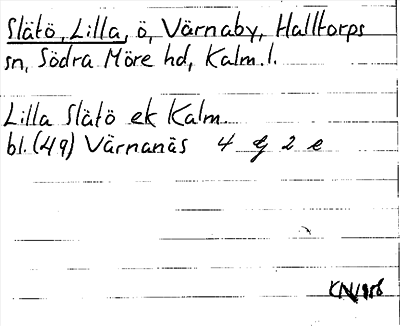 Slätö, Lilla, ö, Värnaby, Halltorps
sn, Södra Möre hd, Kalm. l.
Lilla Slätö ek Kalm.
bl. (49) Värnanäs 4 G 2 e